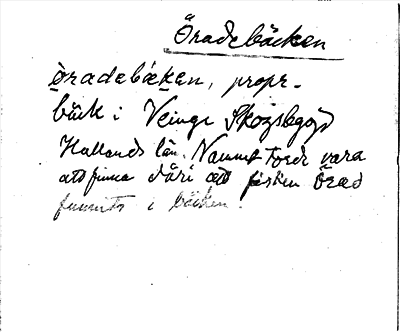 Öradebäcken
öradebäken, propr.
bäck i Veinge Skogsbygd
Hallands län. Namnet torde vara
att finna däri att fisken örad
funnits i bäcken.